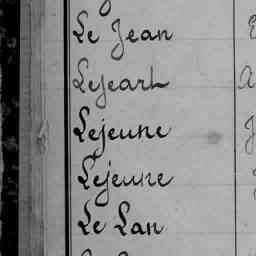 Le Jean
Lejeart
Lejeune
Lejeune
Le Lan